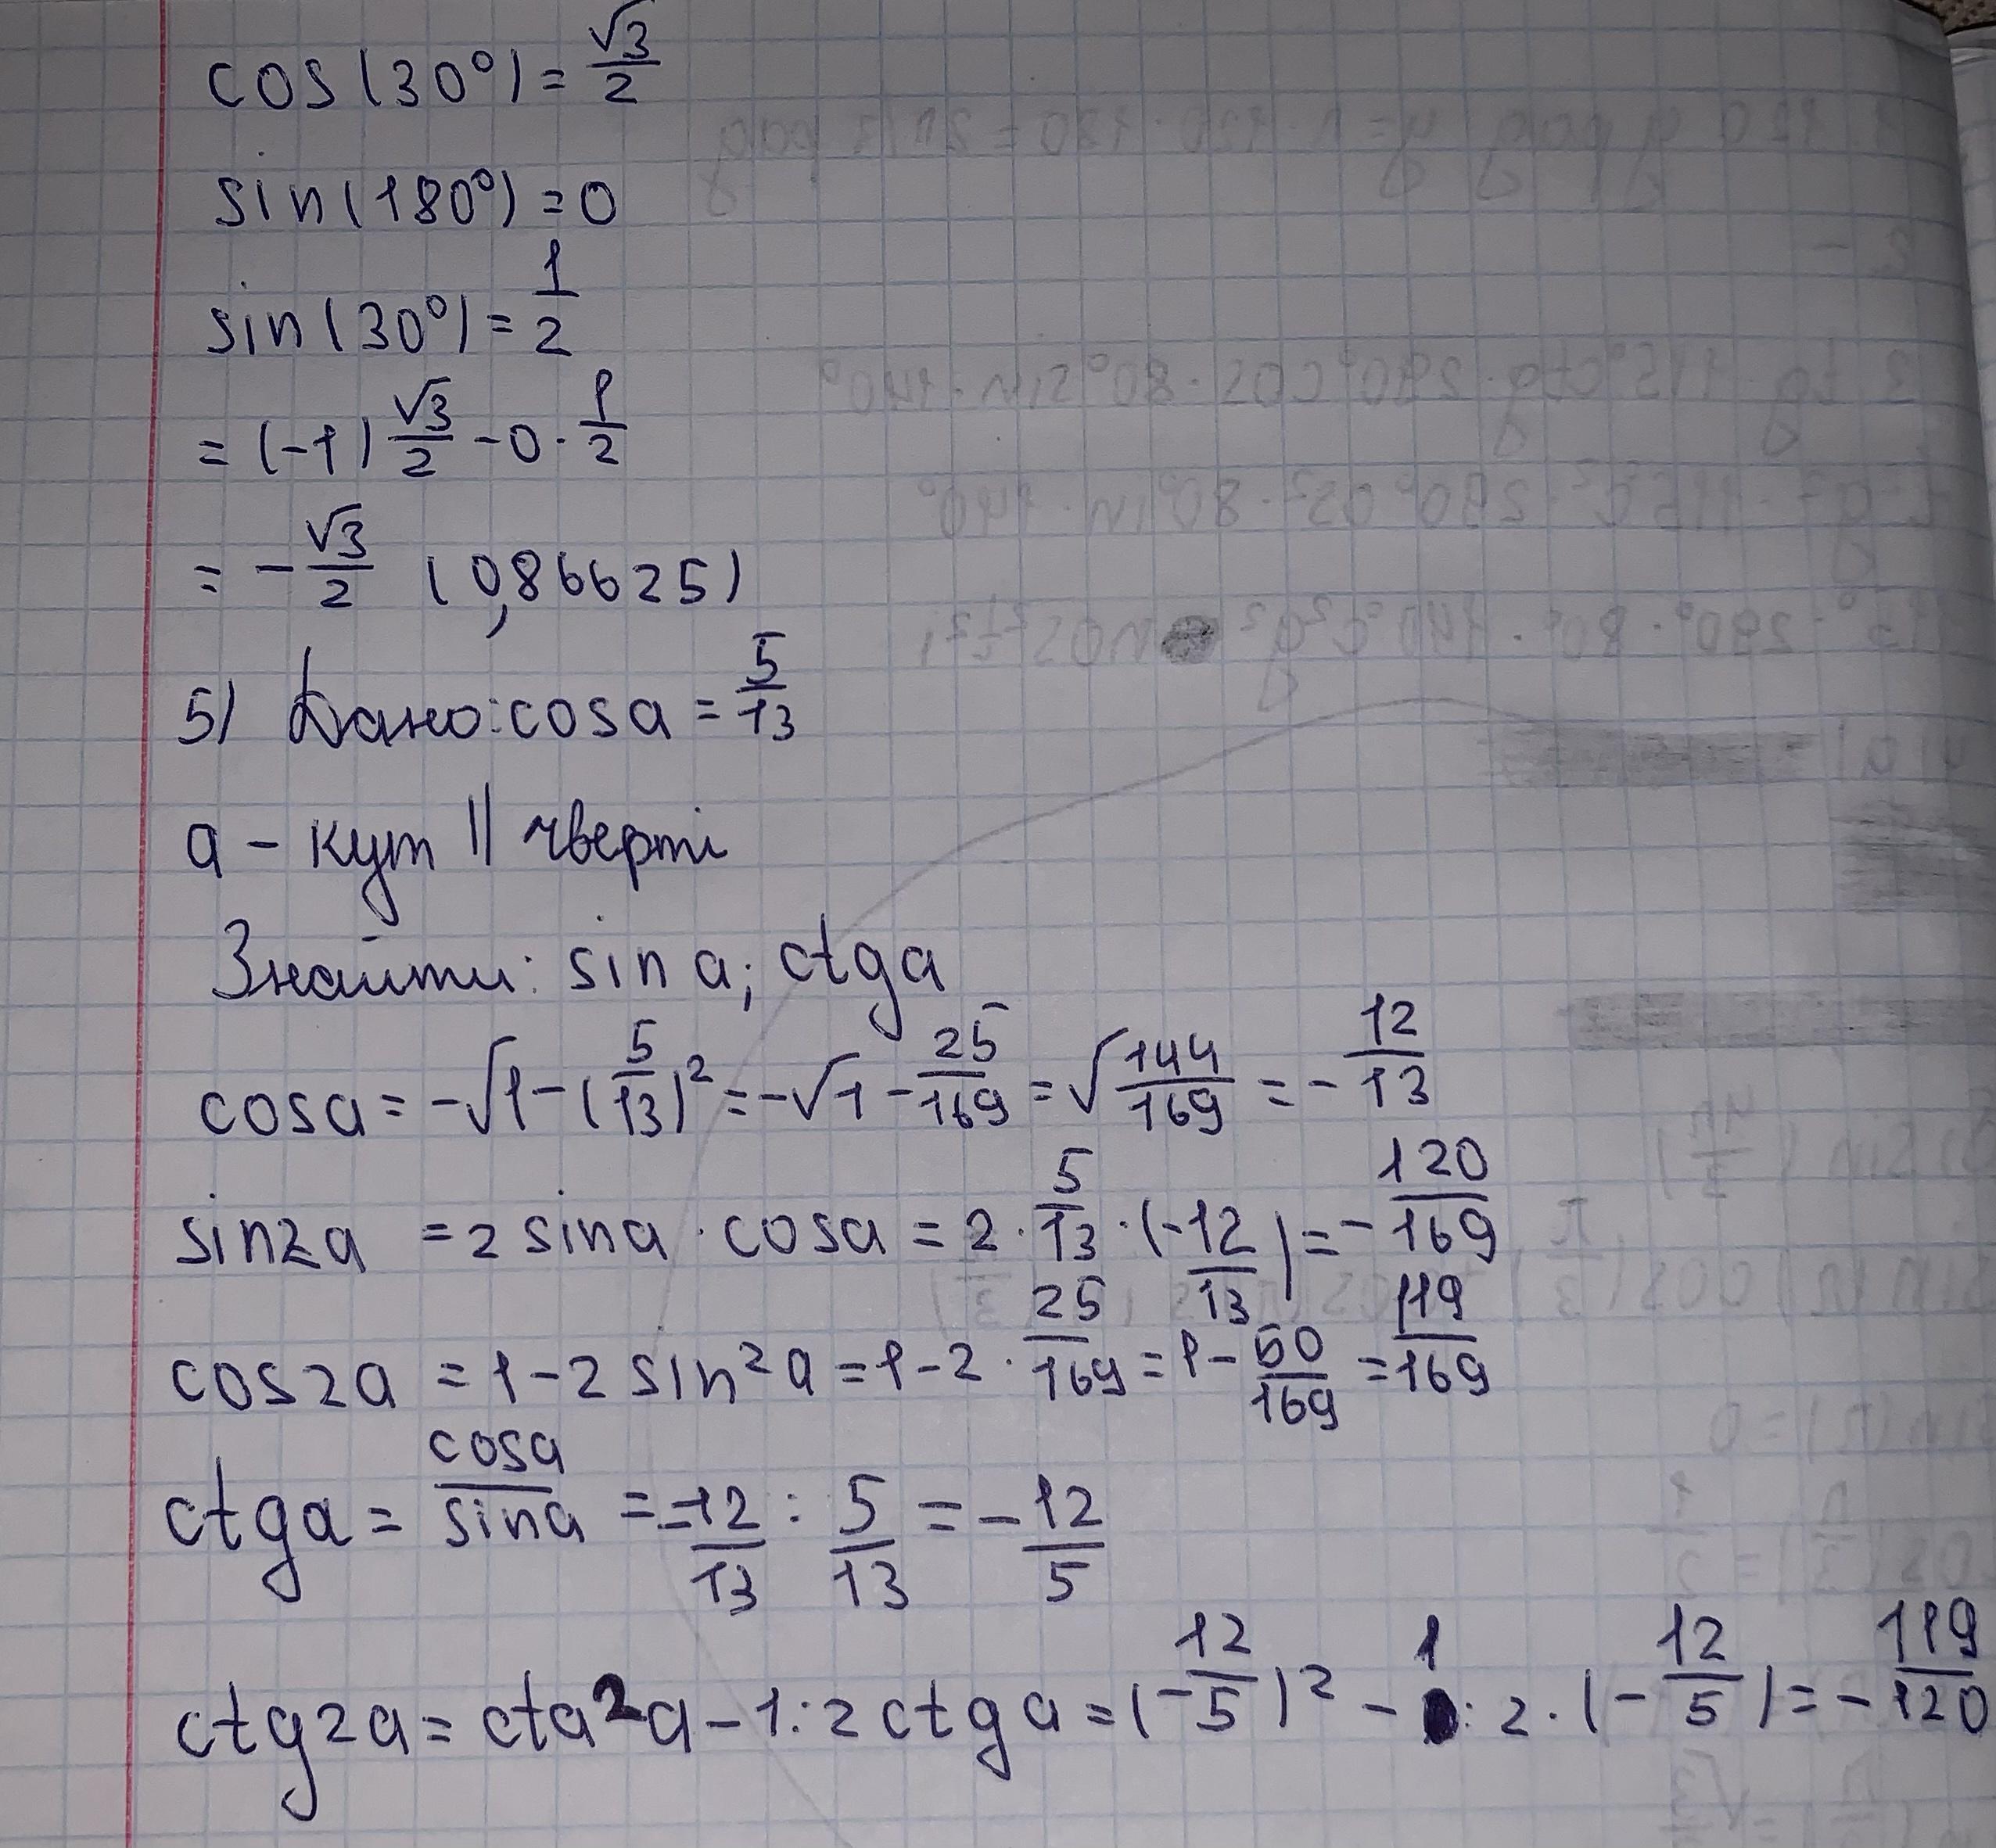 cos(30°)=√3/2
sin(180°)=0
sin(30°)=1/2
=(-1)√3/2-0·1/2
=-√3/2 (0,86625)
5) Дано:cosa=5/13
a-кут || чверті
Знайти: sin a; ctga
cosa=-√1-(5/13)²=-√1-25/169=√144/169=-12/13
sin2a =2sina·cosa=2·5/13·(-12/13)=-120/169
cos2a=1-2sin²a=1-2·25/169=1-50/169=119/169
ctga=cosa/sina=-12/13:5/13=-12/5
ctg2a=cta²a-1:2ctga=(-12/5)²-1:2·(-12/5)=-119/120